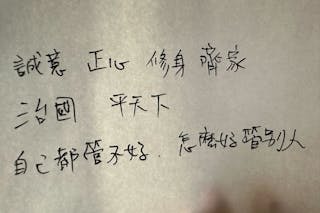 誠意 正心 修身 齊家
治國 平天下
自己都管不好. 怎麼好管別人